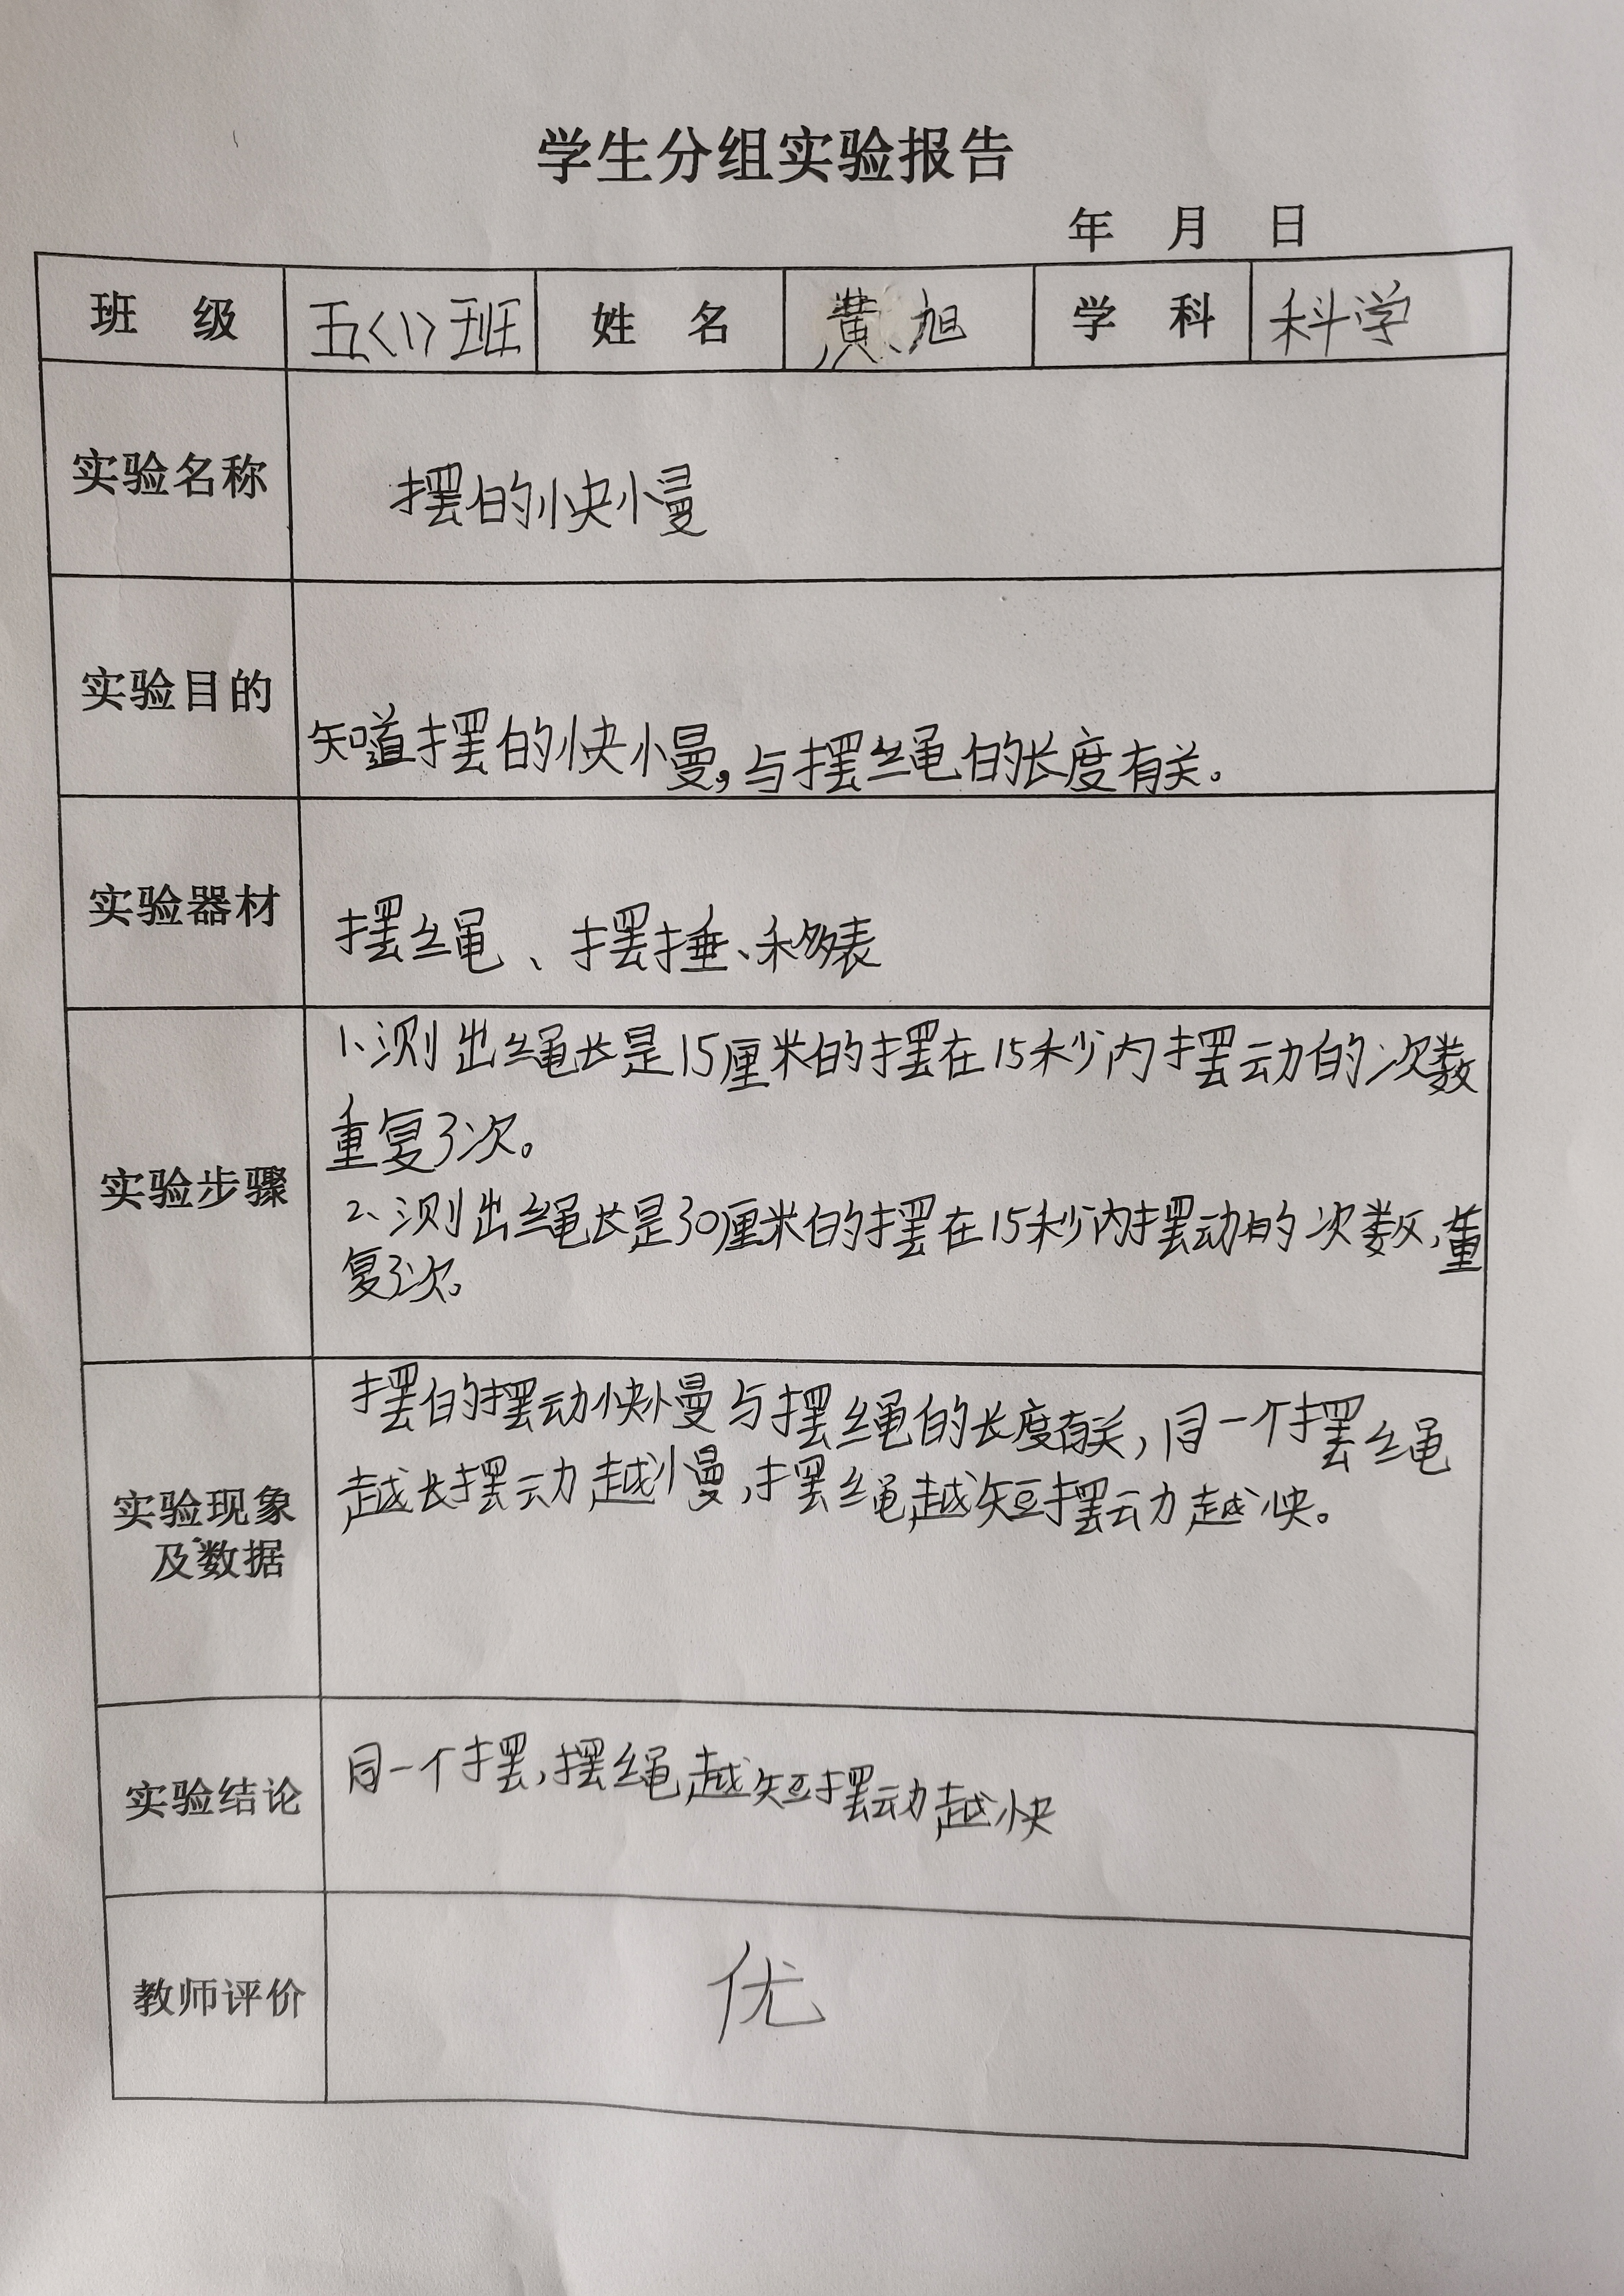 学生分组实验报告
年 月 日
班 级 五<1>班 姓 名 黄旭 学 科 科学
实验名称 摆的快慢
实验目的 知道摆的快慢,与摆绳的长度有关。
实验器材 摆绳、摆捶、秒表
实验步骤
1、测出绳长是15厘米的摆在15秒内摆动的次数
重复3次。
2、测出绳长是30厘米的摆在15秒内摆动的次数,重
复3次。
实验现象
及数据
摆的摆动快慢与摆绳的长度有关,同一个摆绳
越长摆动越慢,摆绳越短摆动越快。
实验结论 同一个摆,摆绳越短摆动越快
教师评价 优